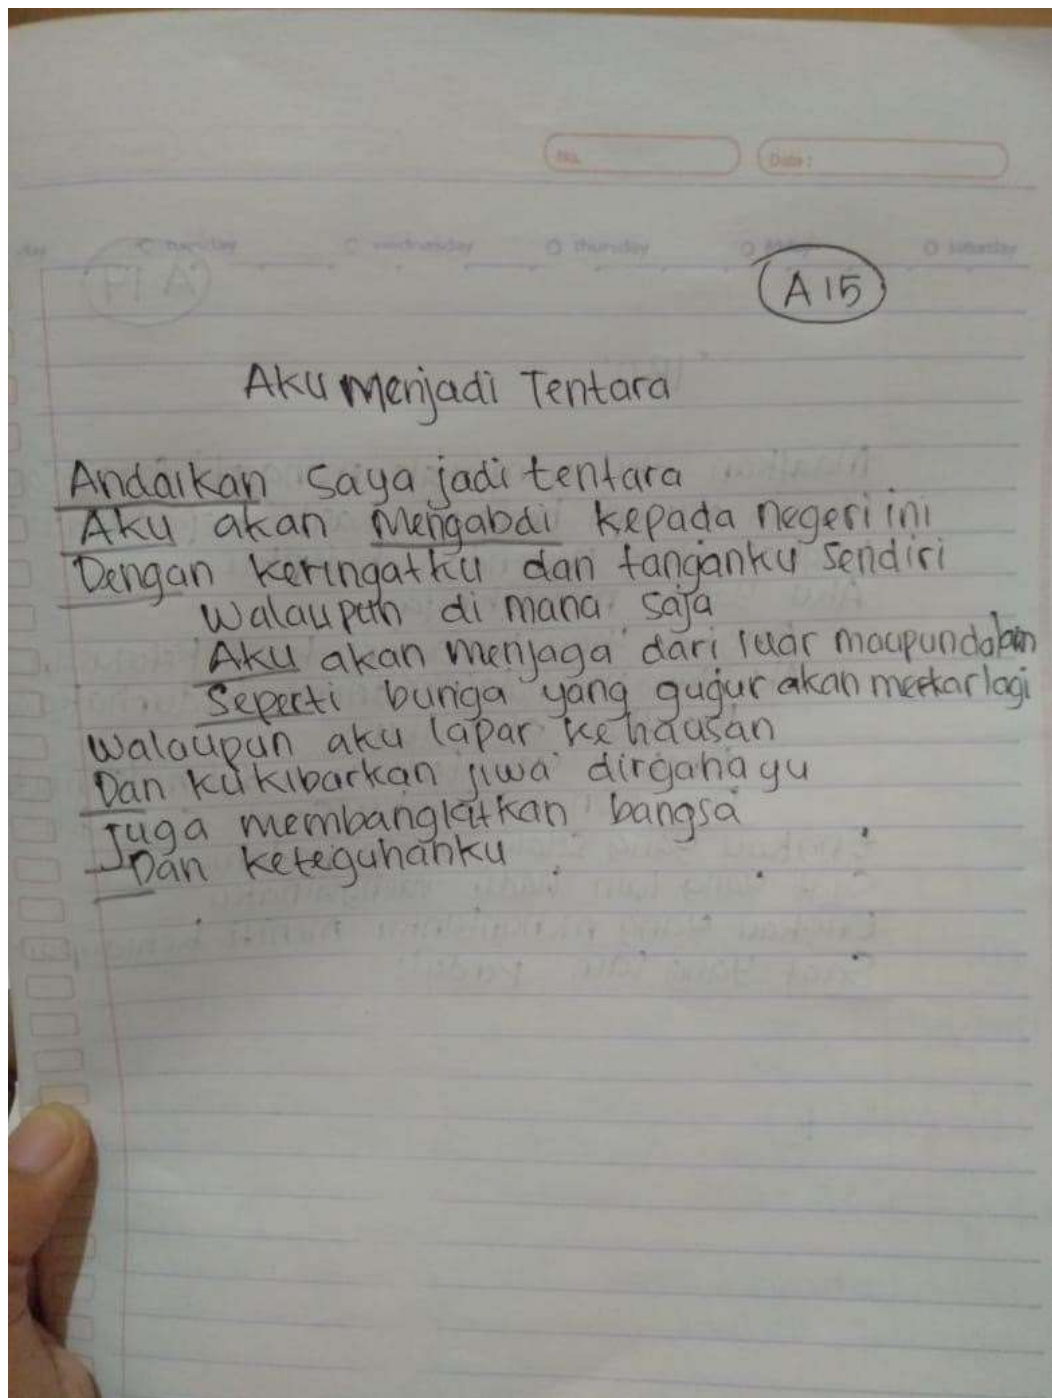 No.
Date:
tuesday wednesday thursday saturday
A 15
Aku Menjadi Tentara
Andaikan saya jadi tentara
Aku akan Mengabdi kepada negeri ini
Dengan keringatku dan tanganku sendiri
Walaupun di mana saja
Aku akan menjaga dari luar maupun dalam
Seperti bunga yang gugur akan mekar lagi
Walaupun aku lapar kehausan
Dan ku kibarkan jiwa dirgahayu
Juga membangkitkan bangsa
Dan keteguhanku